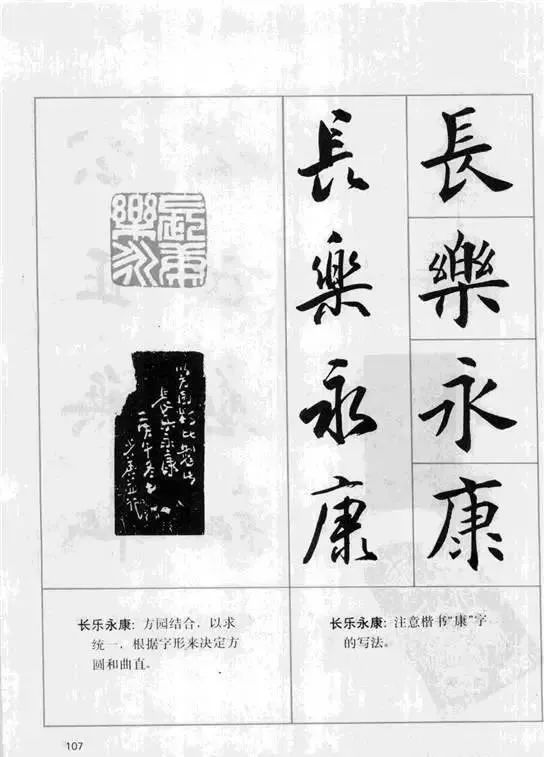 長樂永康
長樂永康
長樂永康
長樂永康
长乐永康: 方园结合，以求
统一，根据字形来决定方
圆和曲直。
长乐永康: 注意楷书"康"字
的写法。
107